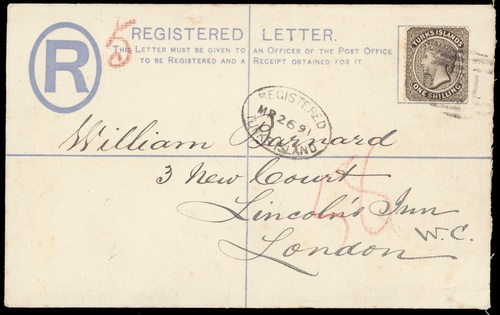 REGISTERED LETTER.
THIS LETTER MUST BE GIVEN TO AN OFFICER OF THE POST OFFICE
TO BE REGISTERED AND A RECEIPT OBTAINED FOR IT.
R
5
TURKS ISLANDS
ONE SHILLING
REGISTERED
MR 26 91
TURKS ISLAND
William Barnard
3 New Court
Lincoln's Inn
London W.C.